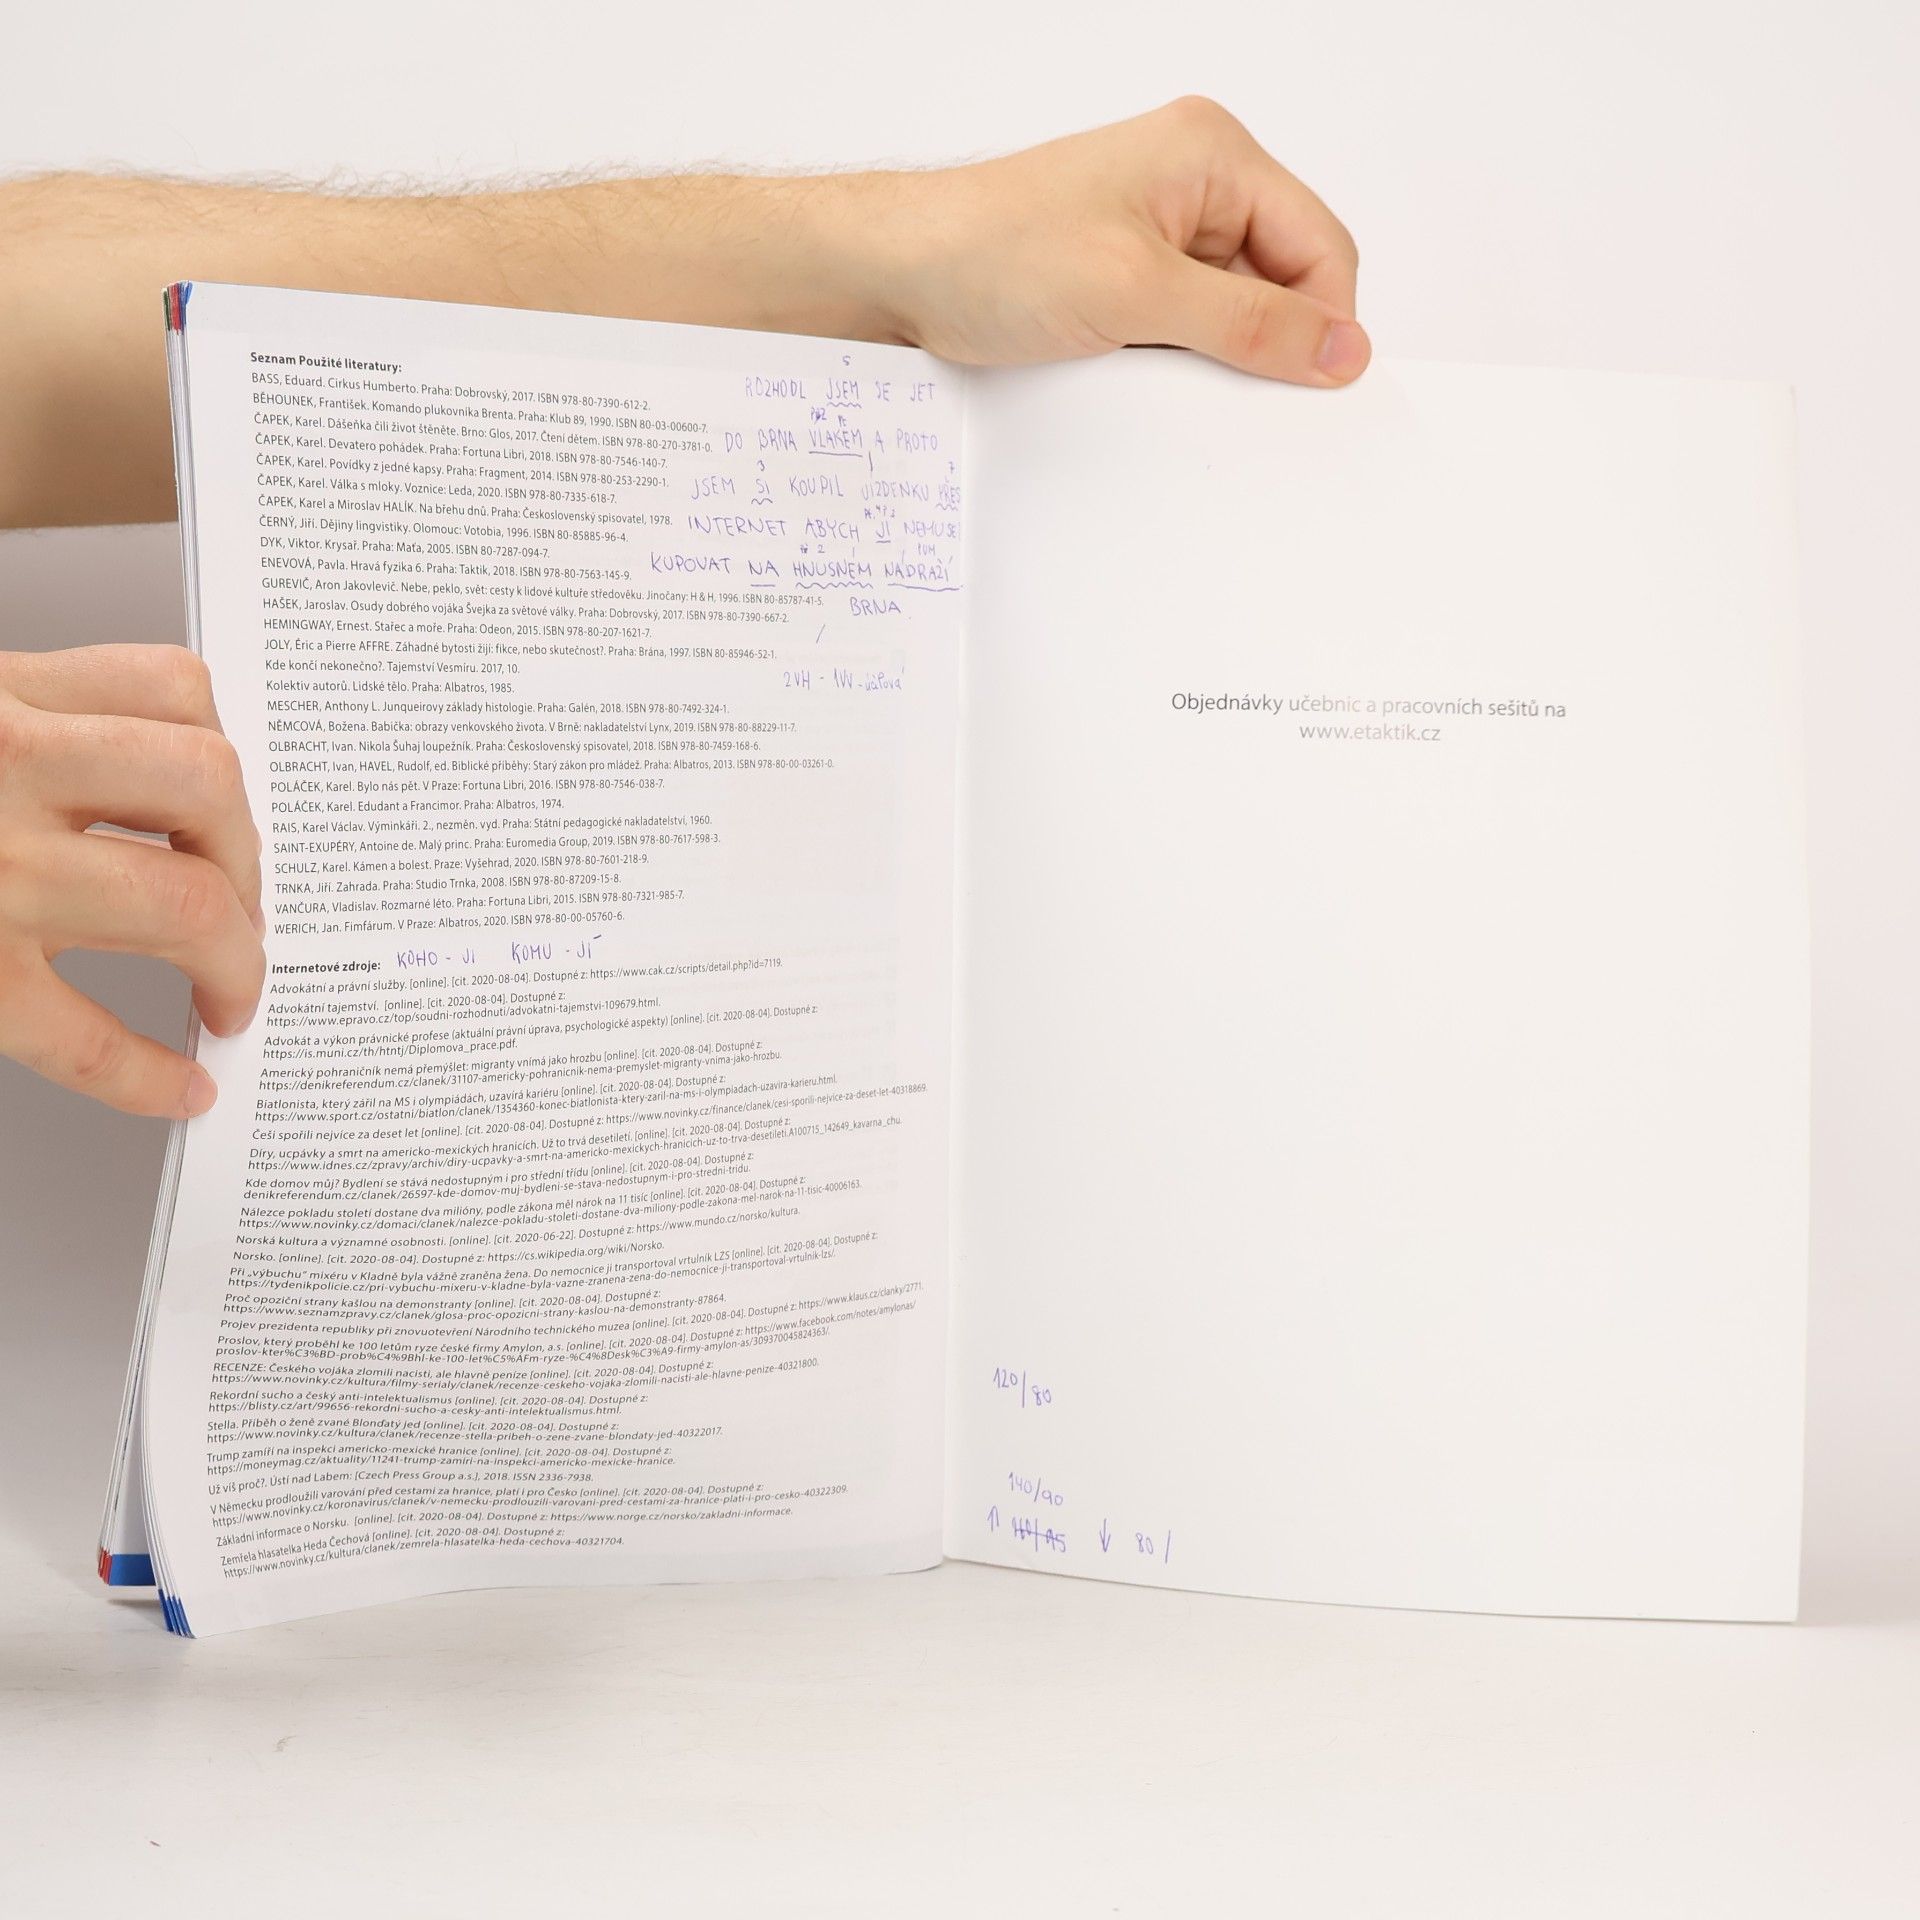 Seznam Použité literatury:
BASS, Eduard. Cirkus Humberto. Praha: Dobrovský, 2017. ISBN 978-80-7390-612-2.
BĚHOUNEK, František. Komando plukovníka Brenta. Praha: Klub 89, 1990. ISBN 80-03-00600-7.
ČAPEK, Karel. Dášeňka čili život štěněte. Brno: Glos, 2017. Čtení dětem. ISBN 978-80-270-3781-0.
ČAPEK, Karel. Devatero pohádek. Praha: Fortuna Libri, 2018. ISBN 978-80-7546-140-7.
ČAPEK, Karel. Povídky z jedné kapsy. Praha: Fragment, 2014. ISBN 978-80-253-2290-1.
ČAPEK, Karel. Válka s mloky. Voznice: Leda, 2020. ISBN 978-80-7335-618-7.
ČAPEK, Karel a Miroslav HALÍK. Na břehu dnů. Praha: Československý spisovatel, 1978.
ČERNÝ, Jiří. Dějiny lingvistiky. Olomouc: Votobia, 1996. ISBN 80-85885-96-4.
DYK, Viktor. Krysař. Praha: Maťa, 2005. ISBN 80-7287-094-7.
ENEVOVÁ, Pavla. Hravá fyzika 6. Praha: Taktik, 2018. ISBN 978-80-7563-145-9.
GUREVIČ, Aron Jakovlevič. Nebe, peklo, svět: cesty k lidové kultuře středověku. Jinočany: H & H, 1996. ISBN 80-85787-41-5.
HAŠEK, Jaroslav. Osudy dobrého vojáka Švejka za světové války. Praha: Dobrovský, 2017. ISBN 978-80-7390-667-2.
HEMINGWAY, Ernest. Stařec a moře. Praha: Odeon, 2015. ISBN 978-80-207-1621-7.
JOLY, Éric a Pierre AFFRE. Záhadné bytosti žijí: fikce, nebo skutečnost?. Praha: Brána, 1997. ISBN 80-85946-52-1.
Kde končí nekonečno?. Tajemství Vesmíru. 2017, 10.
Kolektiv autorů. Lidské tělo. Praha: Albatros, 1985.
MESCHER, Anthony L. Junqueirovy základy histologie. Praha: Galén, 2018. ISBN 978-80-7492-324-1.
NĚMCOVÁ, Božena. Babička: obrazy venkovského života. V Brně: nakladatelství Lynx, 2019. ISBN 978-80-88229-11-7.
OLBRACHT, Ivan. Nikola Šuhaj loupežník. Praha: Československý spisovatel, 2018. ISBN 978-80-7459-168-6.
OLBRACHT, Ivan, HAVEL, Rudolf, ed. Biblické příběhy: Starý zákon pro mládež. Praha: Albatros, 2013. ISBN 978-80-00-03261-0.
POLÁČEK, Karel. Bylo nás pět. V Praze: Fortuna Libri, 2016. ISBN 978-80-7546-038-7.
POLÁČEK, Karel. Edudant a Francimor. Praha: Albatros, 1974.
RAIS, Karel Václav. Výminkáři. 2., nezměn. vyd. Praha: Státní pedagogické nakladatelství, 1960.
SAINT-EXUPÉRY, Antoine de. Malý princ. Praha: Euromedia Group, 2019. ISBN 978-80-7617-598-3.
SCHULZ, Karel. Kámen a bolest. Praze: Vyšehrad, 2020. ISBN 978-80-7601-218-9.
TRNKA, Jiří. Zahrada. Praha: Studio Trnka, 2008. ISBN 978-80-87209-15-8.
VANČURA, Vladislav. Rozmarné léto. Praha: Fortuna Libri, 2015. ISBN 978-80-7321-985-7.
WERICH, Jan. Fimfárum. V Praze: Albatros, 2020. ISBN 978-80-00-05760-6.
5
ROZHODL JSEM SE JET
DO BRNA VLAKEM A PROTO
3 7
JSEM SI KOUPIL JIZDENKU PŘES
INTERNET ABYCH JI NEMUSEL
KUPOVAT NA HNUSNÉM NÁDRAŽÍ
BRNA
2VH - 1VV - účelová
KOHO - JI KOMU - JÍ
Internetové zdroje:
Advokátní a právní služby. [online]. [cit. 2020-08-04]. Dostupné z: https://www.cak.cz/scripts/detail.php?id=7119.
Advokátní tajemství. [online]. [cit. 2020-08-04]. Dostupné z:
https://www.epravo.cz/top/soudni-rozhodnuti/advokatni-tajemstvi-109679.html.
Advokát a výkon právnické profese (aktuální právní úprava, psychologické aspekty) [online]. [cit. 2020-08-04]. Dostupné z:
https://is.muni.cz/th/htntj/Diplomova_prace.pdf.
Americký pohraničník nemá přemýšlet: migranty vnímá jako hrozbu [online]. [cit. 2020-08-04]. Dostupné z:
https://denikreferendum.cz/clanek/31107-americky-pohranicnik-nema-premyslet-migranty-vnima-jako-hrozbu.
Biatlonista, který zářil na MS i olympiádách, uzavírá kariéru [online]. [cit. 2020-08-04]. Dostupné z:
https://www.sport.cz/ostatni/biatlon/clanek/1354360-konec-biatlonista-ktery-zaril-na-ms-i-olympiadach-uzavira-karieru.html.
Češi spořili nejvíce za deset let [online]. [cit. 2020-08-04]. Dostupné z: https://www.novinky.cz/finance/clanek/cesi-sporili-nejvice-za-deset-let-40318869.
Díry, ucpávky a smrt na americko-mexických hranicích. Už to trvá desetiletí. [online]. [cit. 2020-08-04]. Dostupné z:
https://www.idnes.cz/zpravy/archiv/diry-ucpavky-a-smrt-na-americko-mexickych-hranicich-uz-to-trva-desetileti.A100715_142649_kavarna_chu.
Kde domov můj? Bydlení se stává nedostupným i pro střední třídu [online]. [cit. 2020-08-04]. Dostupné z:
denikreferendum.cz/clanek/26597-kde-domov-muj-bydleni-se-stava-nedostupnym-i-pro-stredni-tridu.
Nálezce pokladu století dostane dva milióny, podle zákona měl nárok na 11 tisíc [online]. [cit. 2020-08-04]. Dostupné z:
https://www.novinky.cz/domaci/clanek/nalezce-pokladu-stoleti-dostane-dva-miliony-podle-zakona-mel-narok-na-11-tisic-40006163.
Norská kultura a významné osobnosti. [online]. [cit. 2020-06-22]. Dostupné z: https://www.mundo.cz/norsko/kultura.
Norsko. [online]. [cit. 2020-08-04]. Dostupné z: https://cs.wikipedia.org/wiki/Norsko.
Při „výbuchu“ mixéru v Kladně byla vážně zraněna žena. Do nemocnice ji transportoval vrtulník LZS [online]. [cit. 2020-08-04]. Dostupné z:
https://tydenikpolicie.cz/pri-vybuchu-mixeru-v-kladne-byla-vazne-zranena-zena-do-nemocnice-ji-transportoval-vrtulnik-lzs/.
Proč opoziční strany kašlou na demonstranty [online]. [cit. 2020-08-04]. Dostupné z:
https://www.seznamzpravy.cz/clanek/glosa-proc-opozicni-strany-kaslou-na-demonstranty-87864.
Projev prezidenta republiky při znovuotevření Národního technického muzea [online]. [cit. 2020-08-04]. Dostupné z: https://www.klaus.cz/clanky/2771.
Proslov, který proběhl ke 100 letům ryze české firmy Amylon, a.s. [online]. [cit. 2020-08-04]. Dostupné z: https://www.facebook.com/notes/amylonas/
proslov-kter%C3%BD-prob%C4%9Bhl-ke-100-let%C5%AFm-ryze-%C4%8Desk%C3%A9-firmy-amylon-as/309370045824363/.
RECENZE: Českého vojáka zlomili nacisti, ale hlavně peníze [online]. [cit. 2020-08-04]. Dostupné z:
https://www.novinky.cz/kultura/filmy-serialy/clanek/recenze-ceskeho-vojaka-zlomili-nacisti-ale-hlavne-penize-40321800.
Rekordní sucho a český anti-intelektualismus [online]. [cit. 2020-08-04]. Dostupné z:
https://blisty.cz/art/99656-rekordni-sucho-a-cesky-anti-intelektualismus.html.
Stella. Příběh o ženě zvané Blonďatý jed [online]. [cit. 2020-08-04]. Dostupné z:
https://www.novinky.cz/kultura/clanek/recenze-stella-pribeh-o-zene-zvane-blondaty-jed-40322017.
Trump zamíří na inspekci americko-mexické hranice [online]. [cit. 2020-08-04]. Dostupné z:
https://moneymag.cz/aktuality/11241-trump-zamiri-na-inspekci-americko-mexicke-hranice.
Už víš proč?. Ústí nad Labem: [Czech Press Group a.s.], 2018. ISSN 2336-7938.
V Německu prodloužili varování před cestami za hranice, platí i pro Česko [online]. [cit. 2020-08-04]. Dostupné z:
https://www.novinky.cz/koronavirus/clanek/v-nemecku-prodlouzili-varovani-pred-cestami-za-hranice-plati-i-pro-cesko-40322309.
Základní informace o Norsku. [online]. [cit. 2020-08-04]. Dostupné z: https://www.norge.cz/norsko/zakladni-informace.
Zemřela hlasatelka Heda Čechová [online]. [cit. 2020-08-04]. Dostupné z:
https://www.novinky.cz/kultura/clanek/zemrela-hlasatelka-heda-cechova-40321704.
Objednávky učebnic a pracovních sešitů na
www.etaktik.cz
120/80
140/90
↑ ↓ 80/